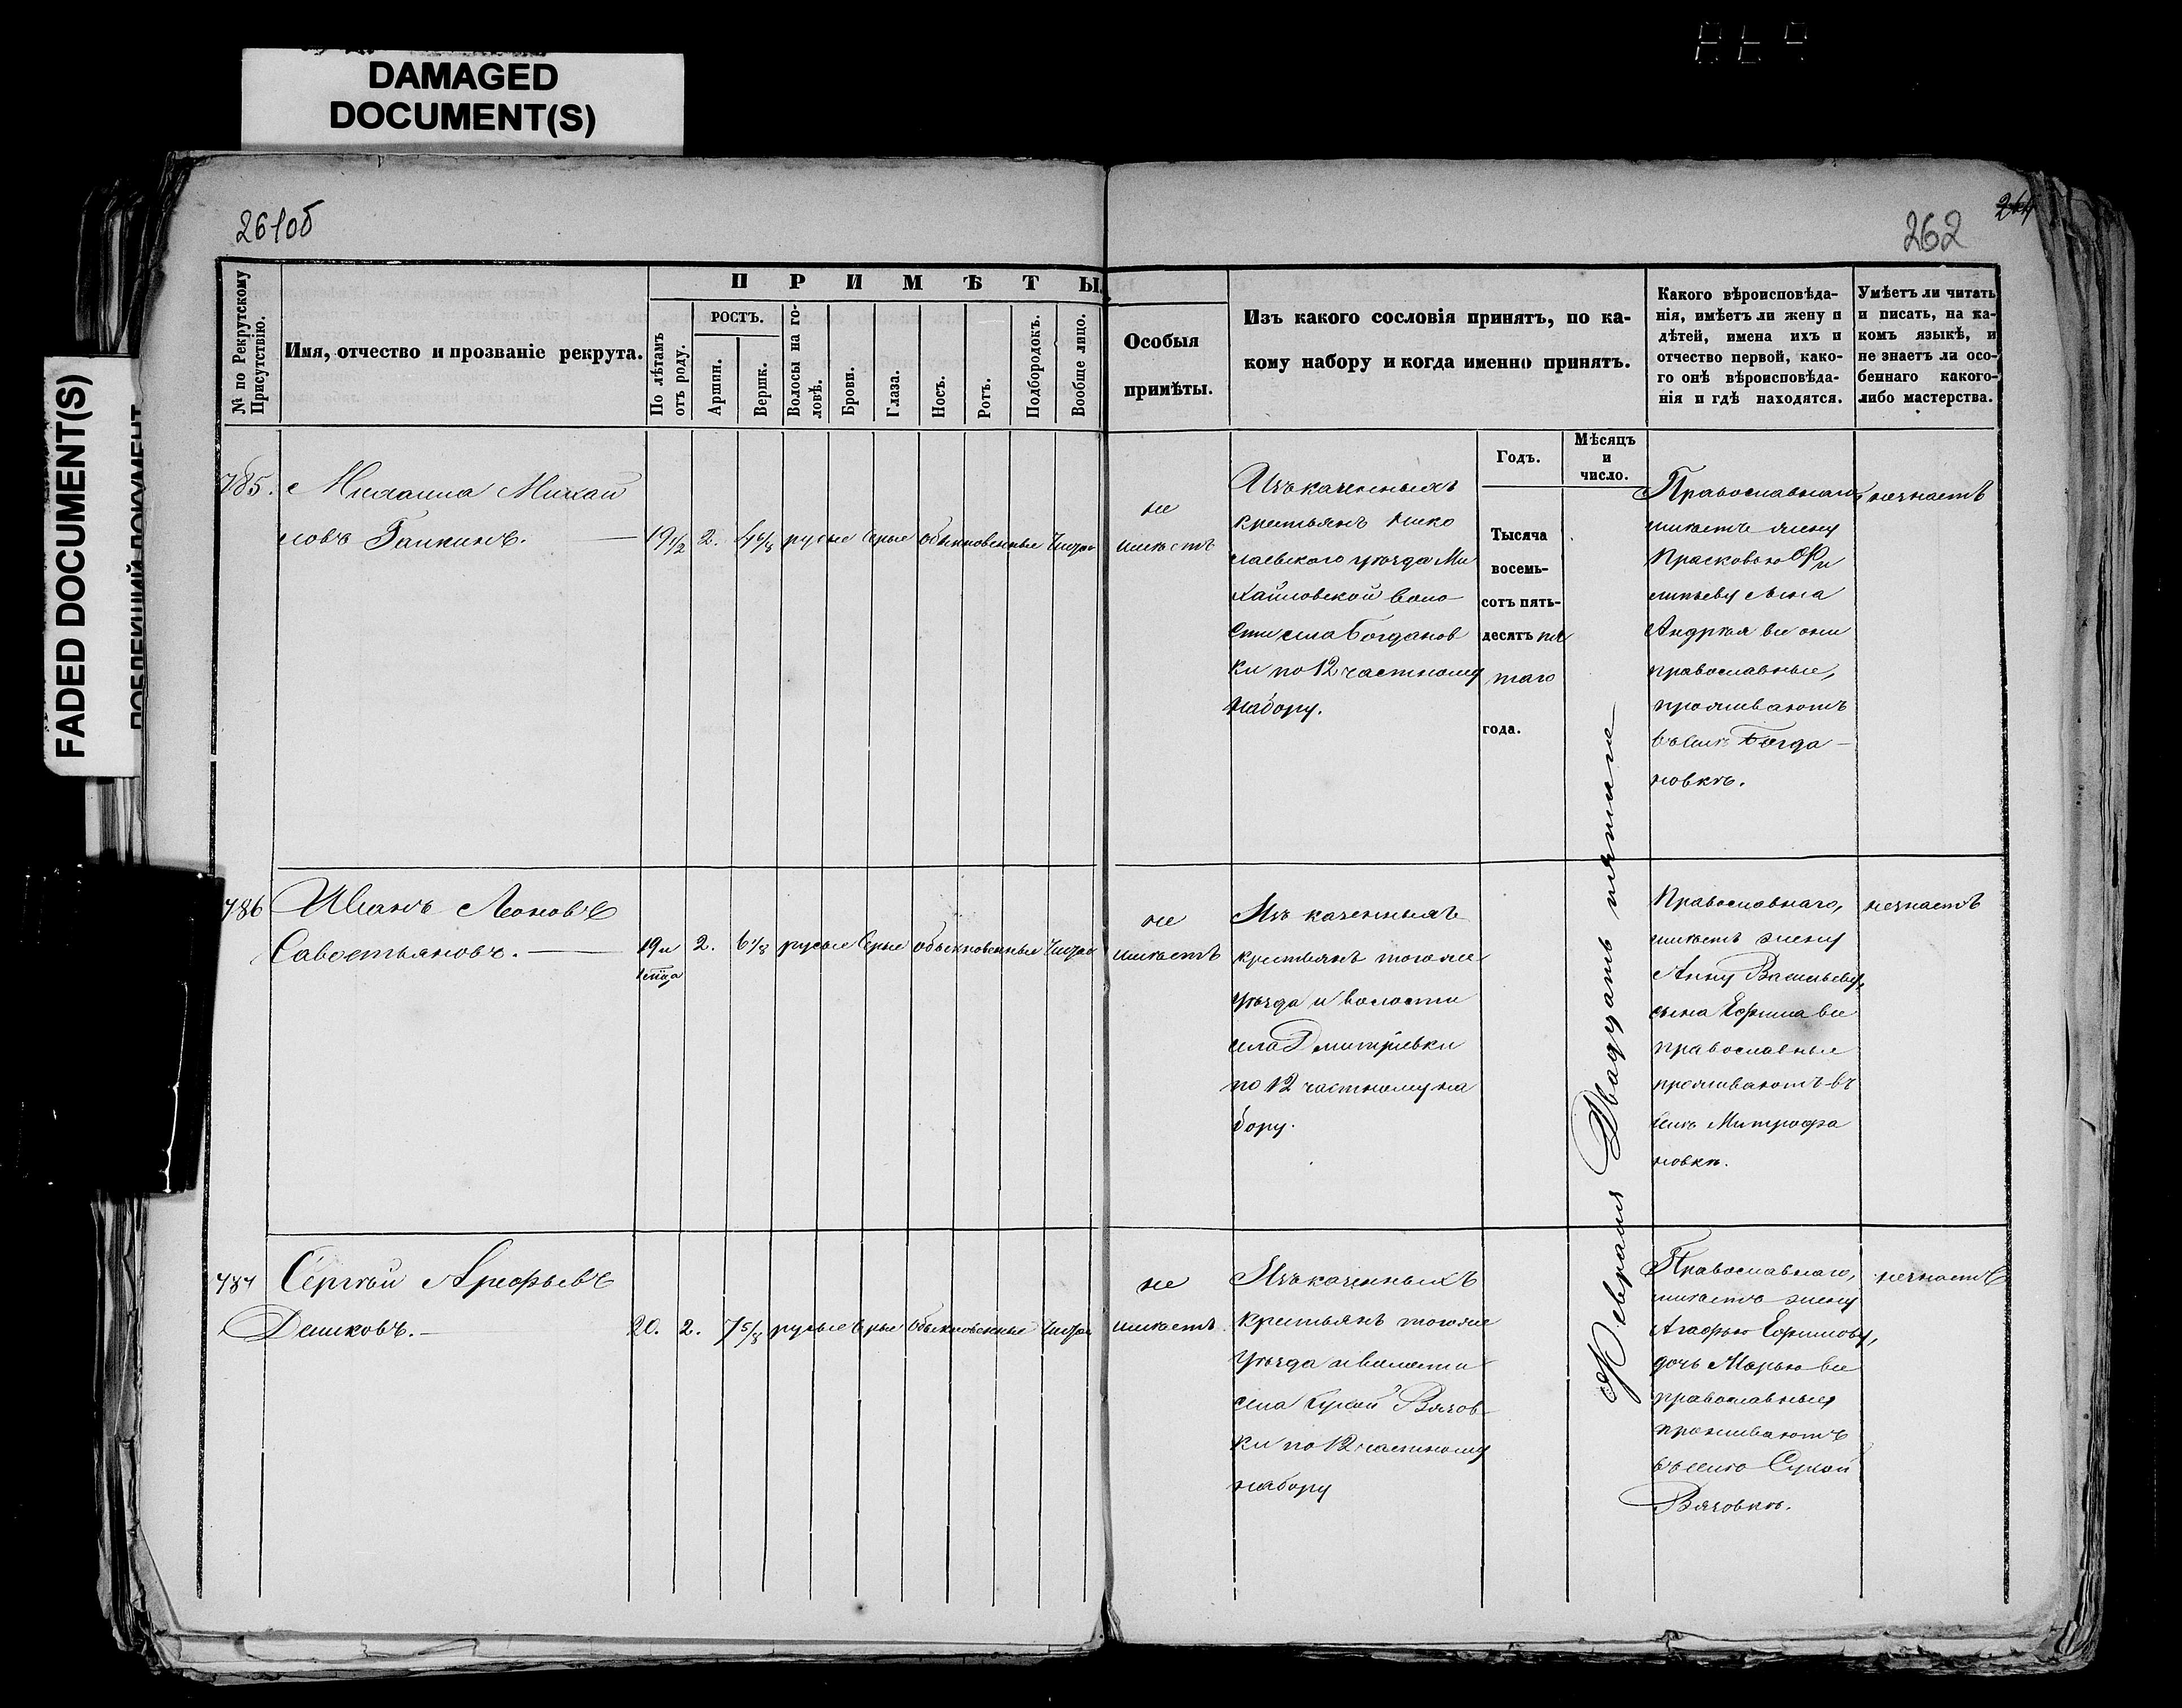 DAMAGED
DOCUMENT(S)
FADED DOCUMENT(S)
261об
262
264
№ по Рекрутскому
Присутствію.
Имя, отчество и прозваніе рекрута.
ПРИМѢТЫ.
По лѣтамъ
отъ роду.
РОСТЪ.
Аршин.
Вершк.
Волосы на го-
ловѣ.
Брови.
Глаза.
Носъ.
Ротъ.
Подбородокъ.
Вообще лицо.
Особыя
примѣты.
Изъ какого сословія принятъ, по ка-
кому набору и когда именно принятъ.
Какого вѣроисповѣда-
нія, имѣетъ ли жену и
дѣтей, имена ихъ и
отчество первой, како-
го онѣ вѣроисповѣда-
нія и гдѣ находятся.
Умѣетъ ли читать
и писать, на ка-
комъ языкѣ, и
не знаетъ ли осо-
беннаго какого-
либо мастерства.
Годъ.
Мѣсяцъ
и
число.
785.
Михаила Михай
ловъ Галкинъ.
19 1/2 2. 4 6/8 русые Серые обыкновенные Чистое
не
имѣетъ
Изъ казенныхъ
крестьянъ Нико
лаевского уѣзда Ми
хайловской воло
сти села Богданов
ки по 12 частному
набору.
Тысяча
восемь-
сотъ пять-
десятъ пя
таго
года.
Февраля Двадцать пятаго
Православнаго,
имѣетъ жену
Прасковью Фи
липьеву сына
Андрея все они
православные,
проживаютъ
въ селѣ Богда-
новкѣ.
незнаетъ
786
Иванъ Леоновъ
Савостьяновъ.
19 и 2. 6 1/8 русые Серые обыкновенные Чистое
не
имѣетъ
Изъ казенныхъ
крестьянъ тогоже
уѣзда и волости
села Дмитріевки
по 12 частному на
бору.
Православнаго,
имѣетъ жену
Анну Васильеву,
сына Ефима все
православные
проживаютъ въ
селѣ Митрофа
новкѣ.
незнаетъ
787
Сергѣй Арефьевъ
20. 2. 7 5/8 русые Серые обыкновенные Чистое
не
имѣетъ
Изъ казенныхъ
крестьянъ тогоже
уѣзда и волости
села Сухой Вязов-
ки по 12 частному
набору
Православнаго,
имѣетъ жену
Агафью Ефимову,
дочь Марью все
православныя
проживаютъ
въ селѣ Сухой
Вязовкѣ.
незнаетъ